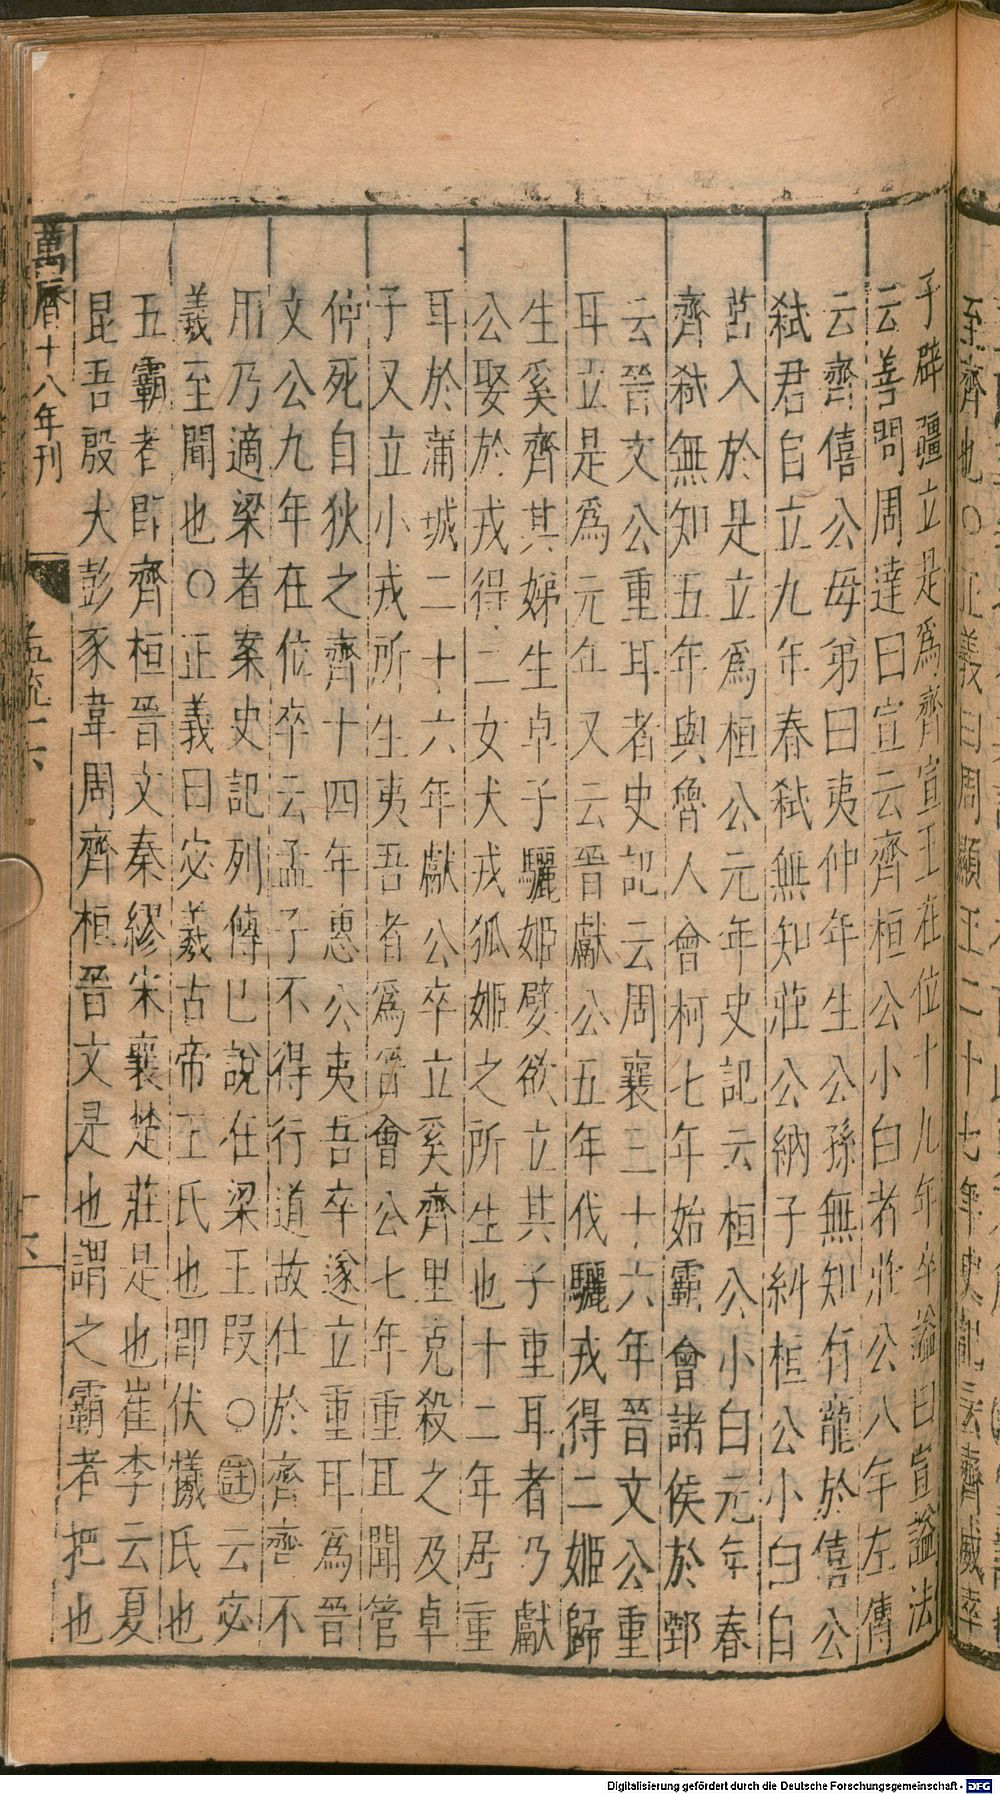 子辟疆立是爲齊宣王在位十九年卒謚曰宣謚法
云善問周達曰宣云齊桓公小白者莊公八年左傳
云齊僖公母弟曰夷仲年生公孫無知有寵於僖公
弑君自立九年春弑無知莊公納子糾桓公小白自
莒入於是立爲桓公元年史記云桓公小白元年春
齊弑無知五年與魯人會柯七年始霸會諸侯於鄄
云晉文公重耳者史記云周襄王十六年晉文公重
耳立是爲元年又云晉獻公五年伐驪戎得二姬歸
生奚齊其娣生卓子驪姬嬖欲立其子重耳者乃獻
公娶於戎得二女犬戎狐姬之所生也十二年居重
耳於蒲城二十六年獻公卒立奚齊里克殺之及卓
子又立小戎所生夷吾者爲晉會公七年重耳聞管
仲死自狄之齊十四年惠公夷吾卒遂立重耳爲晉
文公九年在位卒云孟子不得行道故仕於齊齊不
用乃適梁者案史記列傳已說在梁王叚〇註云宓
義至聞也〇正義曰宓羲古帝王氏也即伏犧氏也
五霸者即齊桓晉文秦繆宋襄楚莊是也崔李云夏
昆吾殷大彭豕韋周齊桓晉文是也謂之霸者把也
萬曆十八年刊
孟疏一下
十六
Digitalisierung gefördert durch die Deutsche Forschungsgemeinschaft - DFG